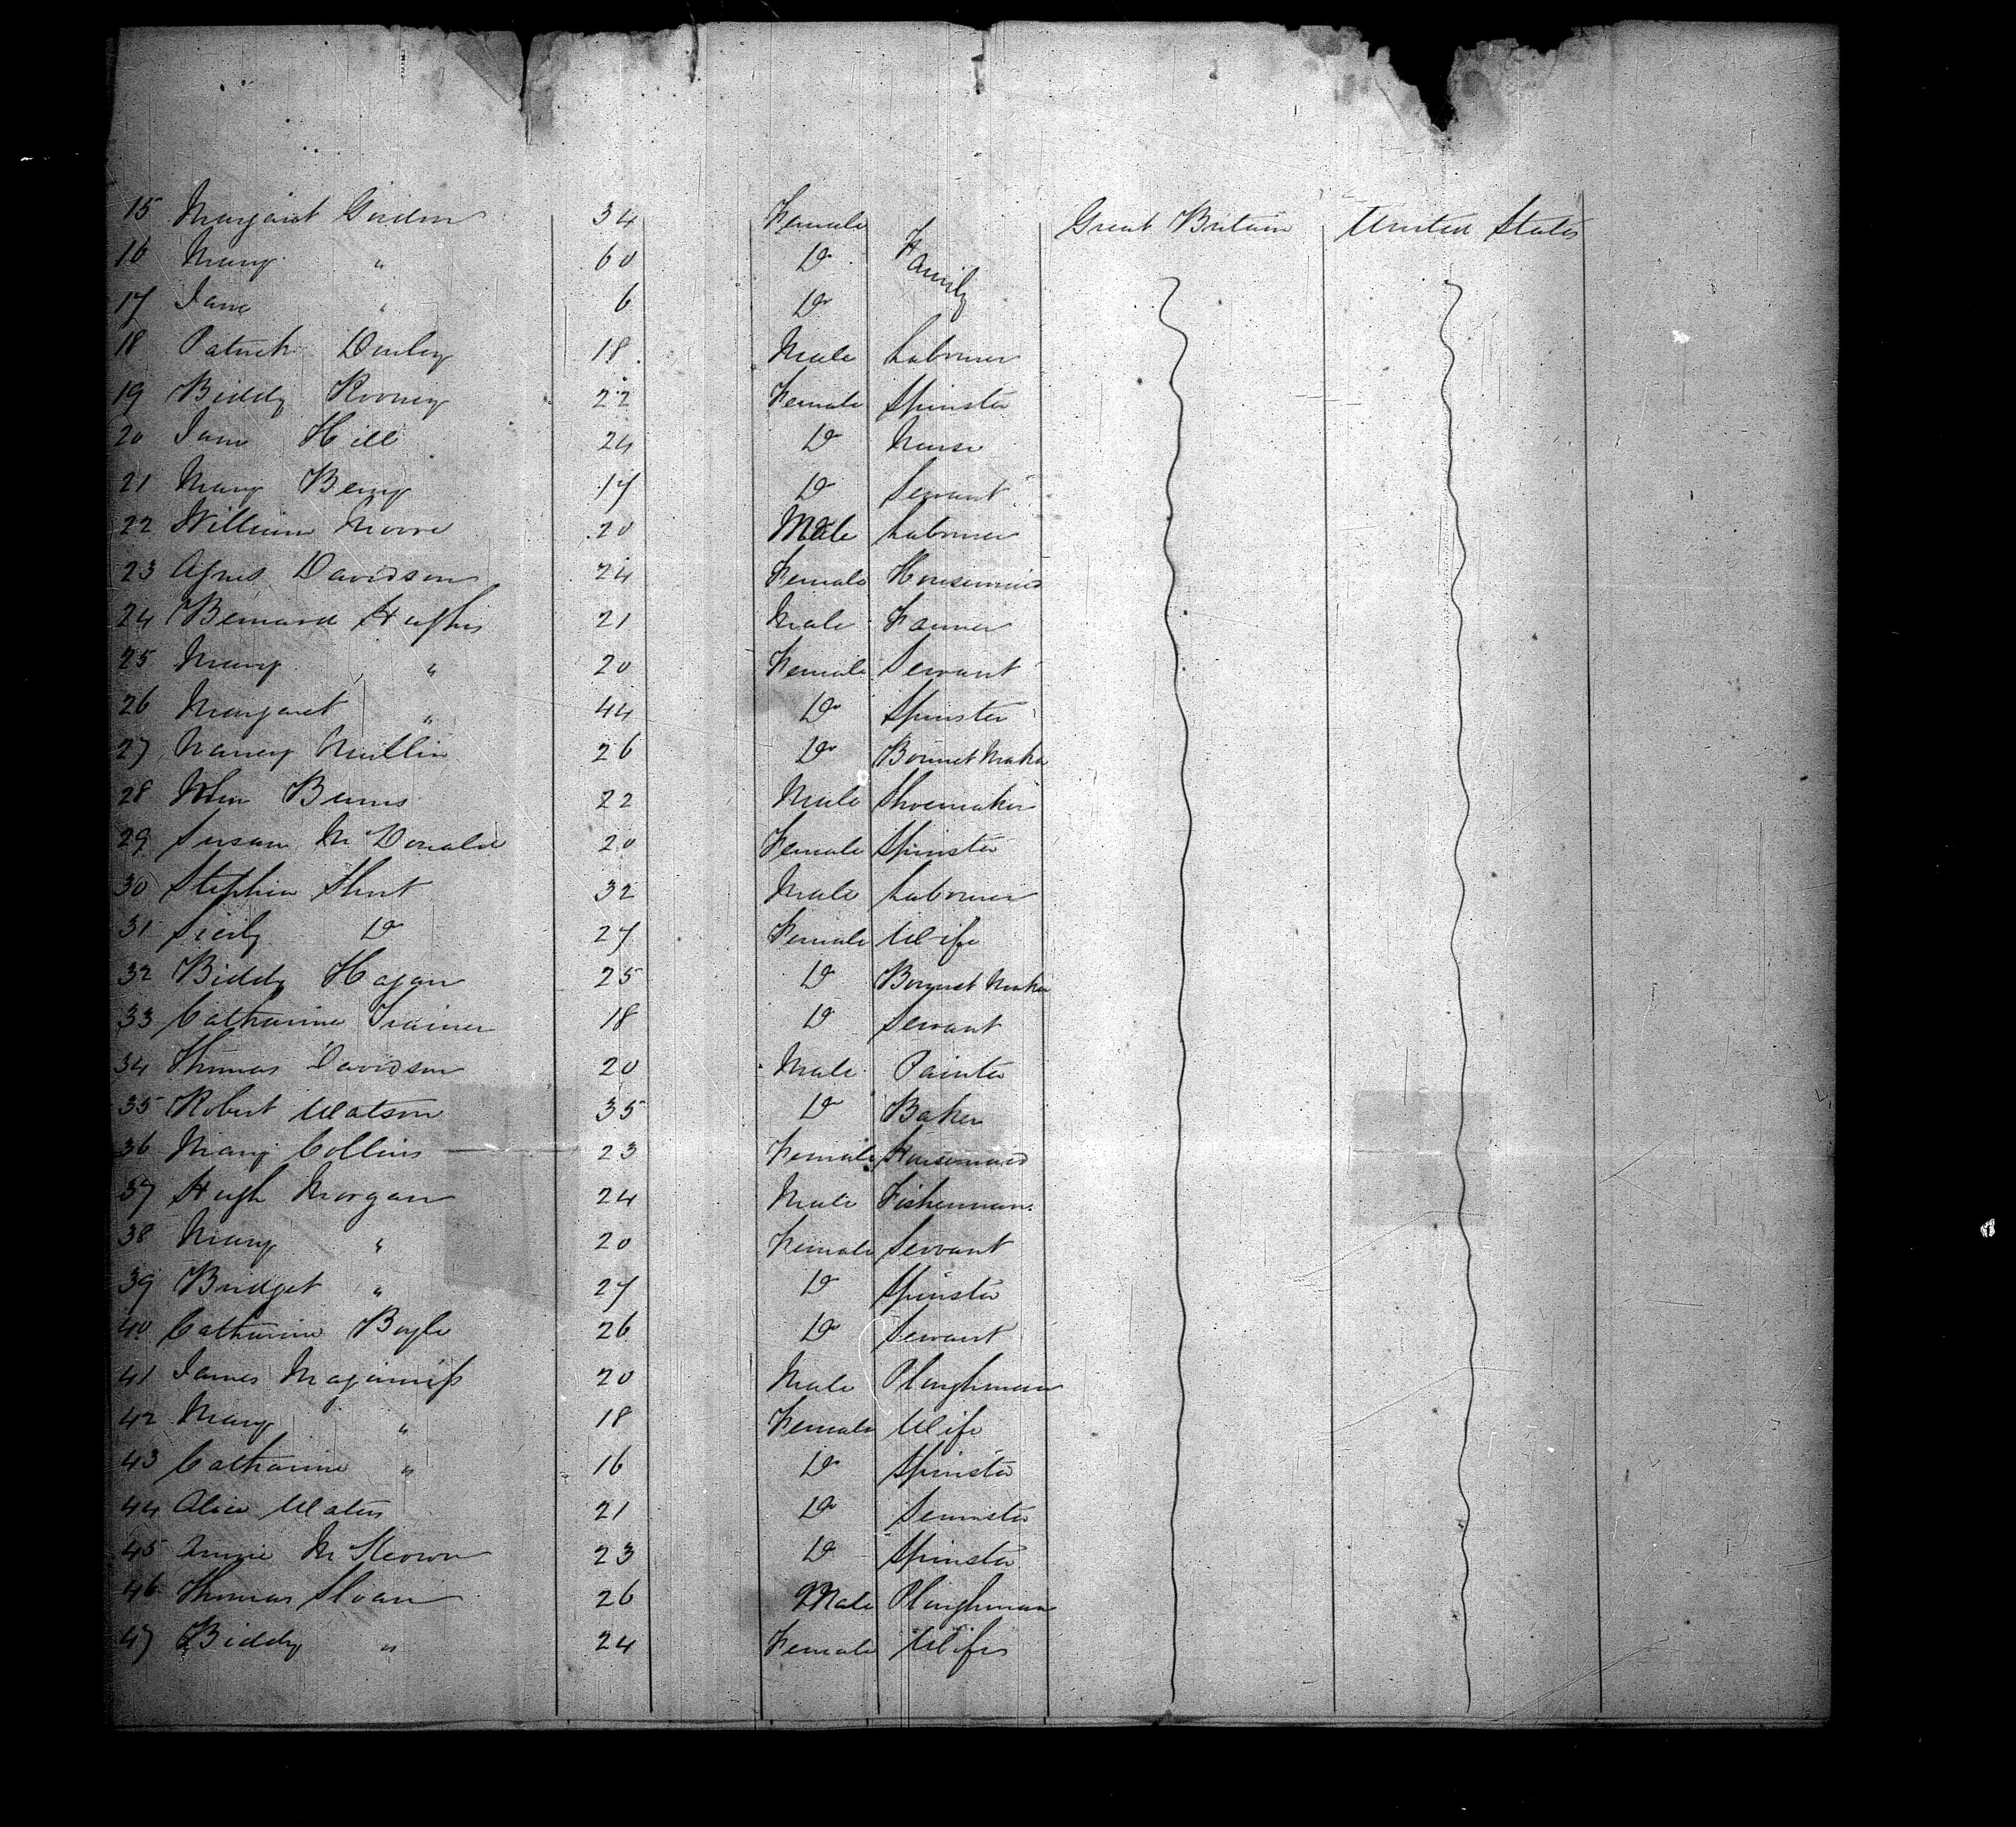 15 Margaret Gordon 34 Female Great Britain United States
16 Mary " 60 Do Family
17 Jane " 6 Do
18 Patrick 18 Male Labourer
19 Biddy Rooney 22 Female Spinster
20 Jane Hill 24 Do Nurse
21 Mary Berry 17 Do Servant
22 William Moore 20 Male Labourer
23 Agnes Davidson 24 Female Housemaid
24 Bernard Hughes 21 Male Farmer
25 Mary " 20 Female Servant
26 Margaret " 44 Do Spinster
27 Nancy Mullin 26 Do Bonnet Maker
28 John Burns 22 Male Shoemaker
29 Susan McDonald 20 Female Spinster
30 Stephen Short 32 Male Labourer
31 Sicily Do 27 Female Wife
32 Biddy Hagan 25 Do Bonnet Maker
33 Catharine Trainer 18 Do Servant
34 Thomas Davidson 20 Male Painter
35 Robert Watson 35 Do Baker
36 Mary Collins 23 Female Housemaid
37 Hugh Morgan 24 Male Fisherman
38 Mary " 20 Female Servant
39 Bridget " 27 Do Spinster
40 Catharine Boyle 26 Do Servant
41 James Maginniss 20 Male Ploughman
42 Mary " 18 Female Wife
43 Catharine " 16 Do Spinster
44 Alice Waters 21 Do
45 Annie McKeown 23 Do Spinster
46 Thomas Sloan 26 Male Ploughman
47 Biddy " 24 Female Wife